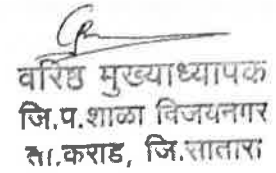 वरिष्ठ मुख्याध्यापक
जि.प.शाळा विजयनगर
ता.कराड, जि.सातारा